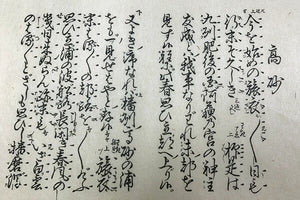 高砂
今を始めの旅衣〱日も
行末ぞ久しき 抑是は
九州肥後の国阿蘇の宮の神主
友成とは我事なりわれ未都を
見ず候程に此春思ひ立都へ上り候
又よき次なれば播州高砂の浦
をも一見せばやと存候 旅衣
末はる〲の都路を〱けふ
思ひ立浦の波船路長閑き春風の
幾日来ぬらん跡末もいさ白雲
のはる〲とさしも思ひし播磨潟